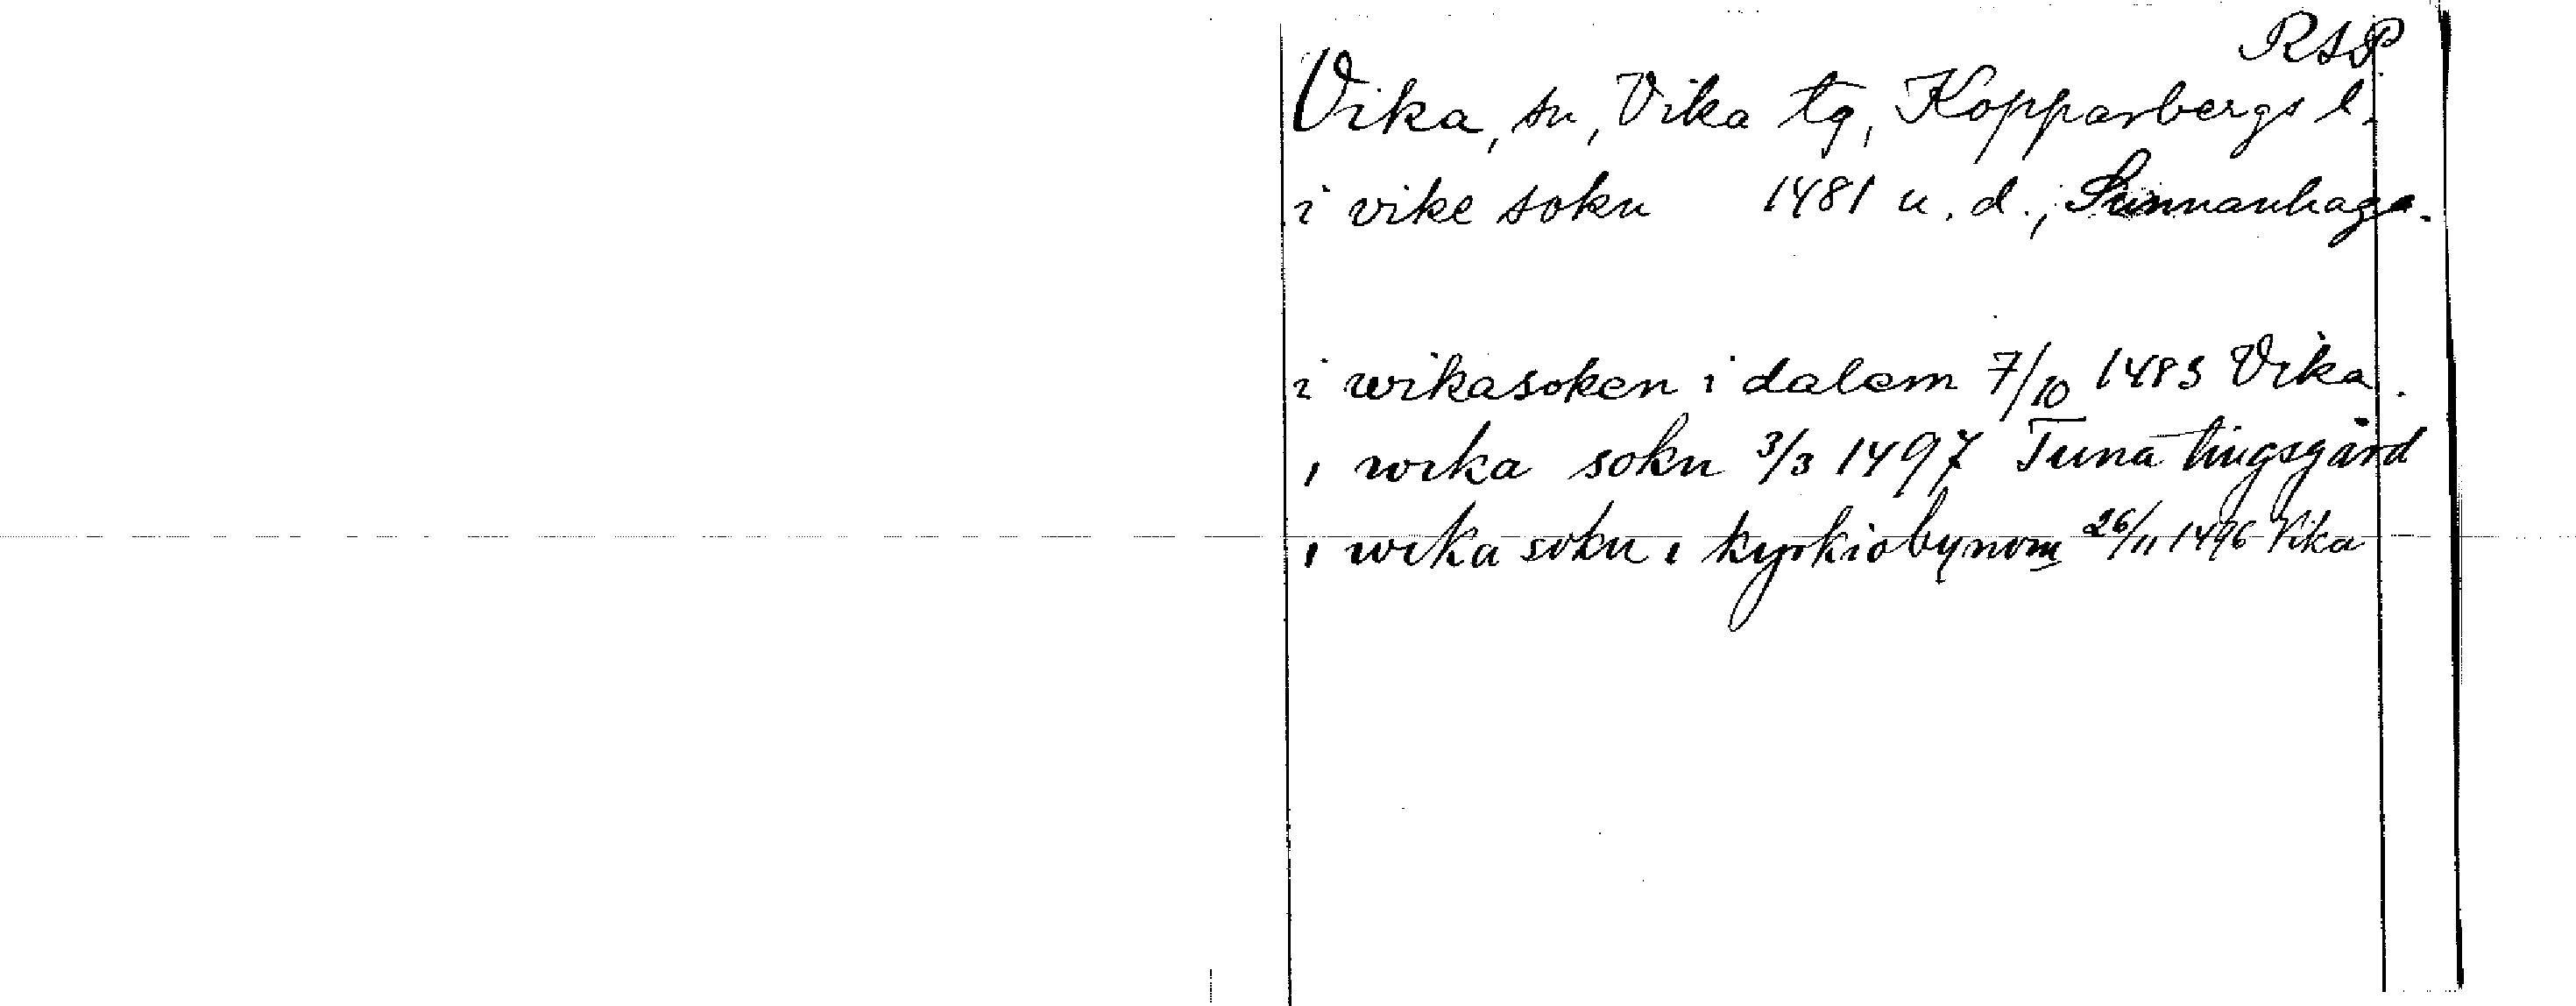 RAP
Vika, sn, Vika tg, Kopparbergs l.
i vike sokn 1481 u. d., Sunnanhaga.
i wikasoken i dalom 7/10 1483 Vika.
i wika sokn 3/3 1497 Tuna tingsgård
i wika sokn i kyrkiobynom 26/11 1496 Vika